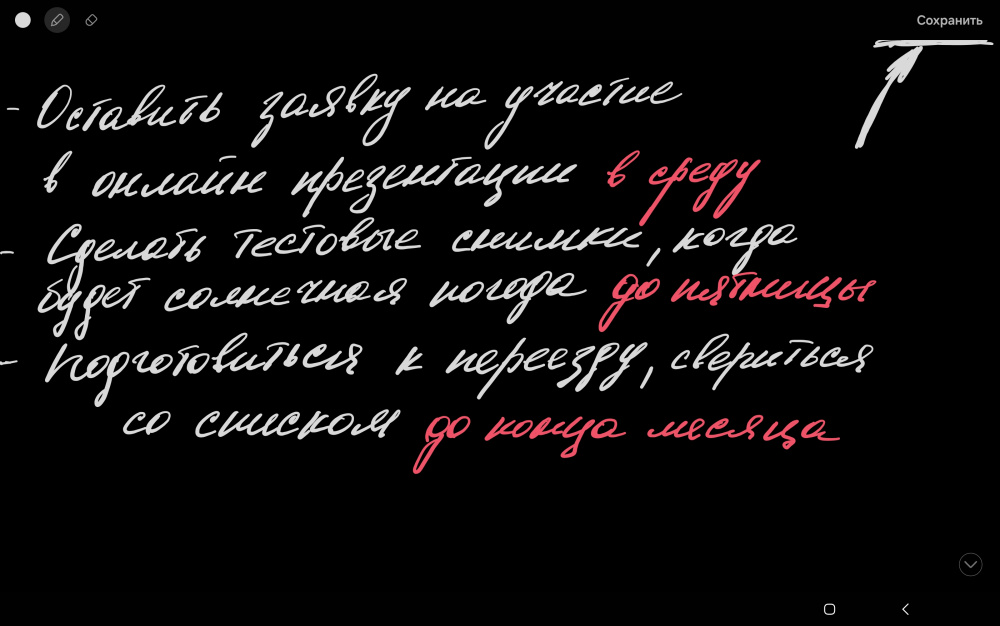 Сохранить
- Оставить заявку на участие
в онлайн презентации в среду
- Сделать тестовые снимки, когда
будет солнечная погода до пятницы
- Подготовиться к переезду, свериться
со списком до конца месяца